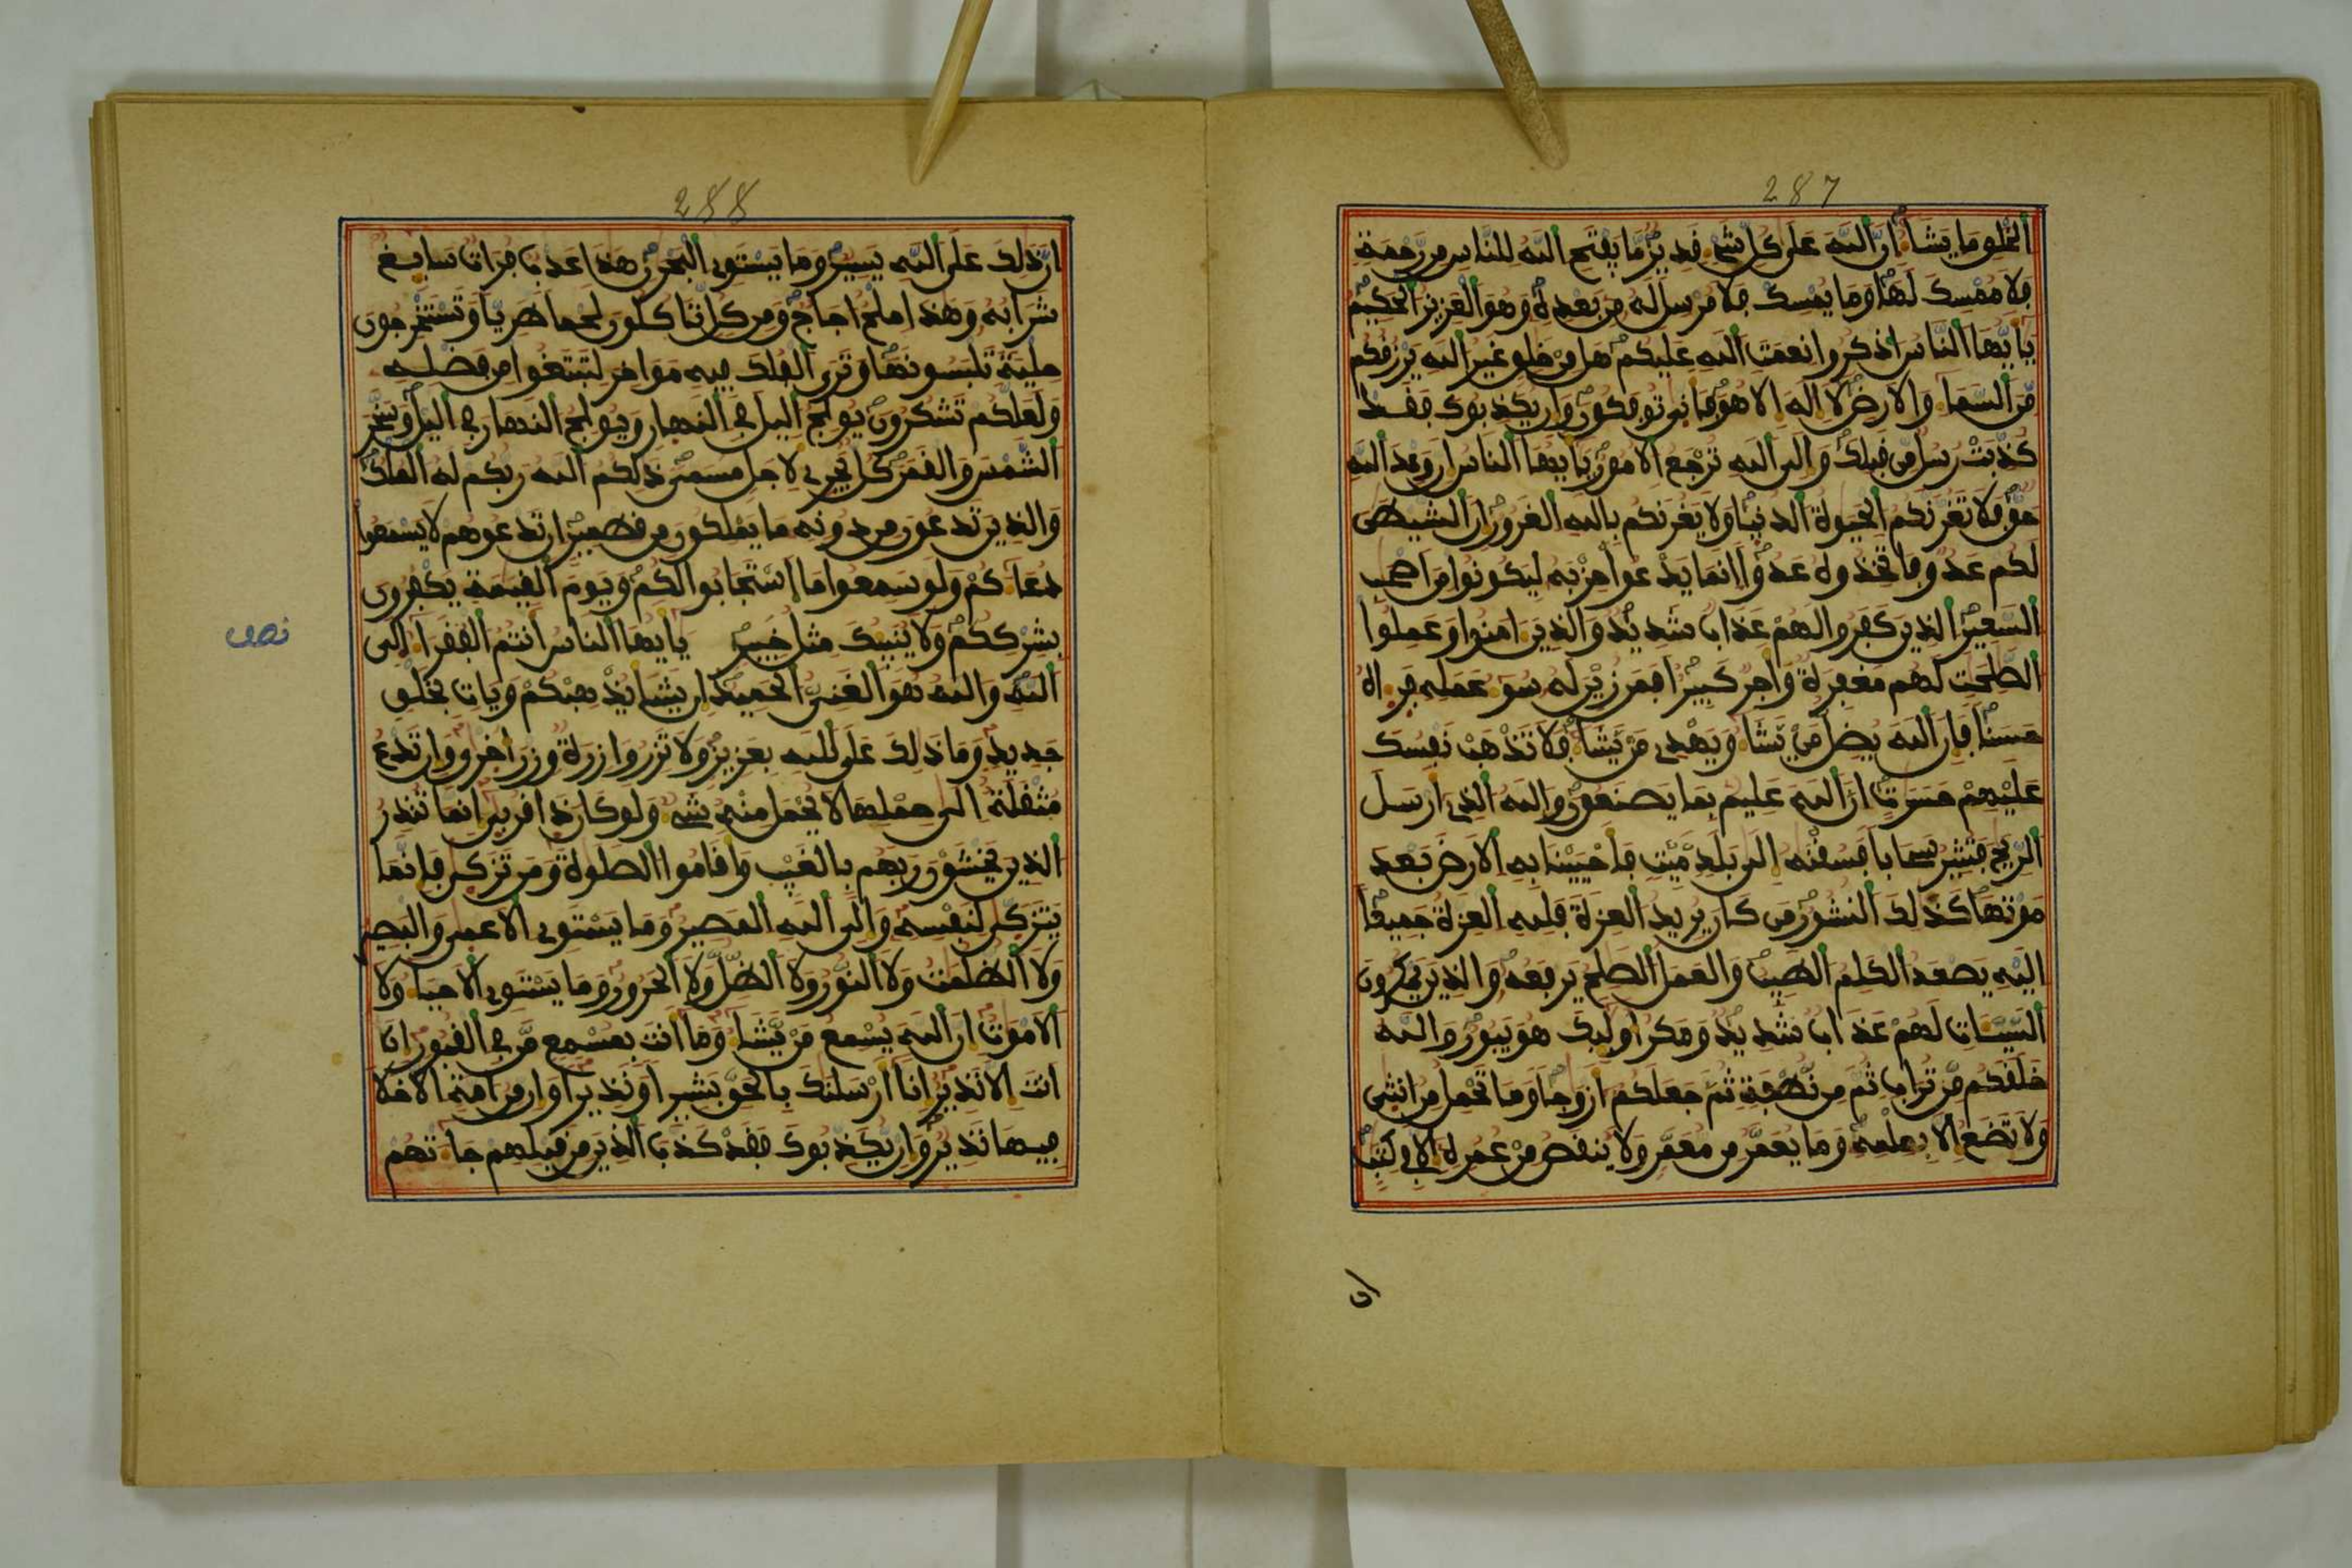 287
الخلق ما يشاء ان الله على كل شيء قدير ما يفتح الله للناس من رحمة
فلا ممسك لها وما يمسك فلا مرسل له من بعده وهو العزيز الحكيم
يايها الناس اذكروا نعمت الله عليكم هل من خلق غير الله يرزقكم
من السماء والارض لا اله الا هو فانى توفكون وان يكذبوك فقد
كذبت رسل من قبلك والى الله ترجع الامور يايها الناس ان وعد الله
حق فلا تغرنكم الحيوة الدنيا ولا يغرنكم بالله الغرور ان الشيطن
لكم عدو فاتخذوه عدوا انما يدعوا حزبه ليكونوا من اصحب
السعير الذين كفروا لهم عذاب شديد والذين امنوا وعملوا
الصلحت لهم مغفرة واجر كبير افمن زين له سوء عمله فرءاه
حسنا فان الله يضل من يشاء ويهدي من يشاء فلا تذهب نفسك
عليهم حسرت ان الله عليم بما يصنعون والله الذي ارسل
الريح فتثير سحابا فسقنه الى بلد ميت فاحيينا به الارض بعد
موتها كذلك النشور من كان يريد العزة فلله العزة جميعا
اليه يصعد الكلم الطيب والعمل الصلح يرفعه والذين يمكرون
السيئات لهم عذاب شديد ومكر اولئك هو يبور والله
خلقكم من تراب ثم من نطفة ثم جعلكم ازوجا وما تحمل من انثى
ولا تضع الا بعلمه وما يعمر من معمر ولا ينقص من عمره الا في كتب
288
ان ذلك على الله يسير وما يستوي البحرن هذا عذب فرات سايغ
شرابه وهذا ملح اجاج ومن كل تاكلون لحما طريا وتستخرجون
حلية تلبسونها وترى الفلك فيه مواخر لتبتغوا من فضله
ولعلكم تشكرون يولج اليل في النهار ويولج النهار في اليل وسخر
الشمس والقمر كل يجري لاجل مسمى ذلكم الله ربكم له الملك
والذين تدعون من دونه ما يملكون من قطمير ان تدعوهم لا يسمعوا
دعاءكم ولو سمعوا ما استجابوا لكم ويوم القيمة يكفرون
بشرككم ولا ينبئك مثل خبير يايها الناس انتم الفقراء الى
نصف
الله والله هو الغني الحميد ان يشا يذهبكم ويات بخلق
جديد وما ذلك على الله بعزيز ولا تزر وازرة وزر اخرى وان تدع
مثقلة الى حملها لا يحمل منه شيء ولو كان ذا قربى انما تنذر
الذين يخشون ربهم بالغيب واقاموا الصلوة ومن تزكى فانما
يتزكى لنفسه والى الله المصير وما يستوي الاعمى والبصير
ولا الظلمت ولا النور ولا الظل ولا الحرور وما يستوي الاحياء ولا
الاموت ان الله يسمع من يشاء وما انت بمسمع من في القبور ان
انت الا نذير انا ارسلنك بالحق بشيرا ونذيرا وان من امة الا خلا
فيها نذير وان يكذبوك فقد كذب الذين من قبلهم جاءتهم